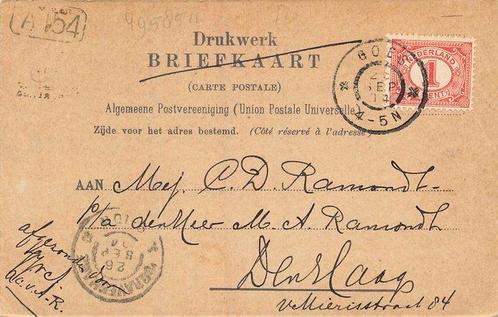 A 154
Drukwerk
BRIEFKAART
(CARTE POSTALE)
Algemeene Postvereeniging (Union Postale Universelle)
Zijde voor het adres bestemd. (Côté réservé à l'adresse)
NEDERLAND
1
CENT
GOES
SEP
4-5N
AAN Mej. C. D. Ramondt-
p/a den Heer M. A. Ramondt
Den Haag
v. Mierisstraat 84
afgezonden door
A.-R.
'S GRAVENHAGE
26
SEP
14